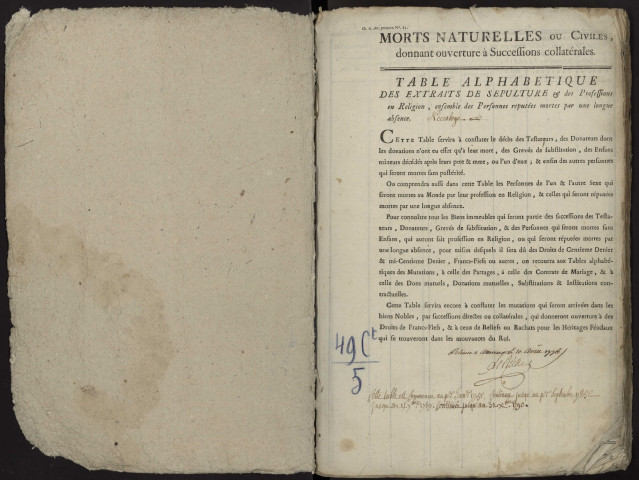 MORTS NATURELLES OU CIVILES,
donnant ouverture à Successions collatérales.
TABLE ALPHABETIQUE
DES EXTRAITS DE SEPULTURE & des Professions
en Religion, ensemble des Personnes réputées mortes par une longue
absence.
CETTE Table servira à constater le décès des Testateurs, des Donateurs dont
les donations n'ont eu effet qu'à leur mort, des Grevés de Substitution, des Enfans
mineurs décédés après leurs pere & mere, ou l'un d'eux; & enfin des autres personnes
qui seront mortes sans postérité.
On comprendra aussi dans cette Table les Personnes de l'un & l'autre Sexe qui
seront mortes au Monde par leur profession en Religion, & celles qui seront réputées
mortes par une longue absence.
Pour connoître tous les Biens immeubles qui seront partie des successions des Testa-
teurs, Donateurs, Grevés de substitution, & des Personnes qui seront mortes sans
Enfans, qui auront fait profession en Religion, ou qui seront réputées mortes par
une longue absence, pour raison desquels il sera dû des Droits de Centieme Denier
& mi-Centieme Denier, Francs-Fiefs ou autres, on recourra aux Tables alphabé-
tiques des Mutations, à celle des Partages, à celle des Contrats de Mariage, & à
celle des Dons mutuels, Donations mutuelles, Substitutions & Institutions con-
tractuelles.
Cette Table servira encore à constater les mutations qui seront arrivées dans les
biens Nobles, par successions directes ou collatérales, qui donneront ouverture à des
Droits de Francs-Fiefs, & à ceux de Reliefs ou Rachats pour les Héritages Féodaux
qui se trouveront dans les mouvances du Roi.
49 Ct
5